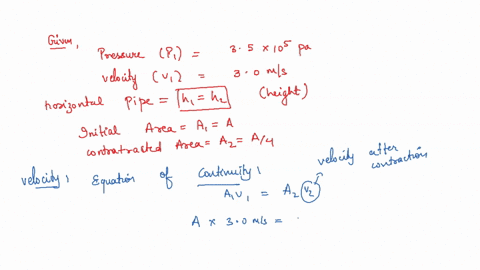 Given,
Pressure (P₁) = 3.5 × 10⁵ pa
velocity (v₁) = 3.0 m/s
horizontal Pipe = h₁ = h₂ (height)
Initial Area = A₁ = A
contratracted Area = A₂ = A/4
velocity: Equation of Continuity:
velocity after contraction
A₁v₁ = A₂ v₂
A × 3.0 m/s =